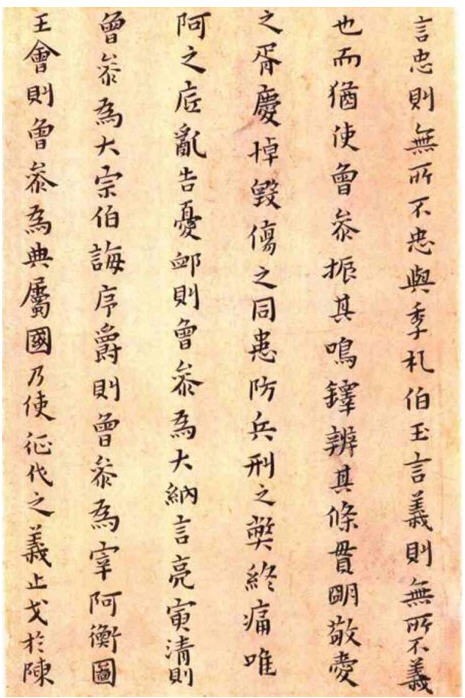 言忠則無所不忠與季札伯玉言義則無所不義
也而猶使曾叅振其鳴鐸辨其條貫眀敬愛
之胥慶悼毀傷之同患防兵刑之獘終痛唯
阿之底亂告憂卹則曾叅為大納言亮寅清則
曾叅為大宗伯誨序爵則曾叅為宰阿衡圖
王會則曾叅為典屬國乃使征伐之義止戈於陳